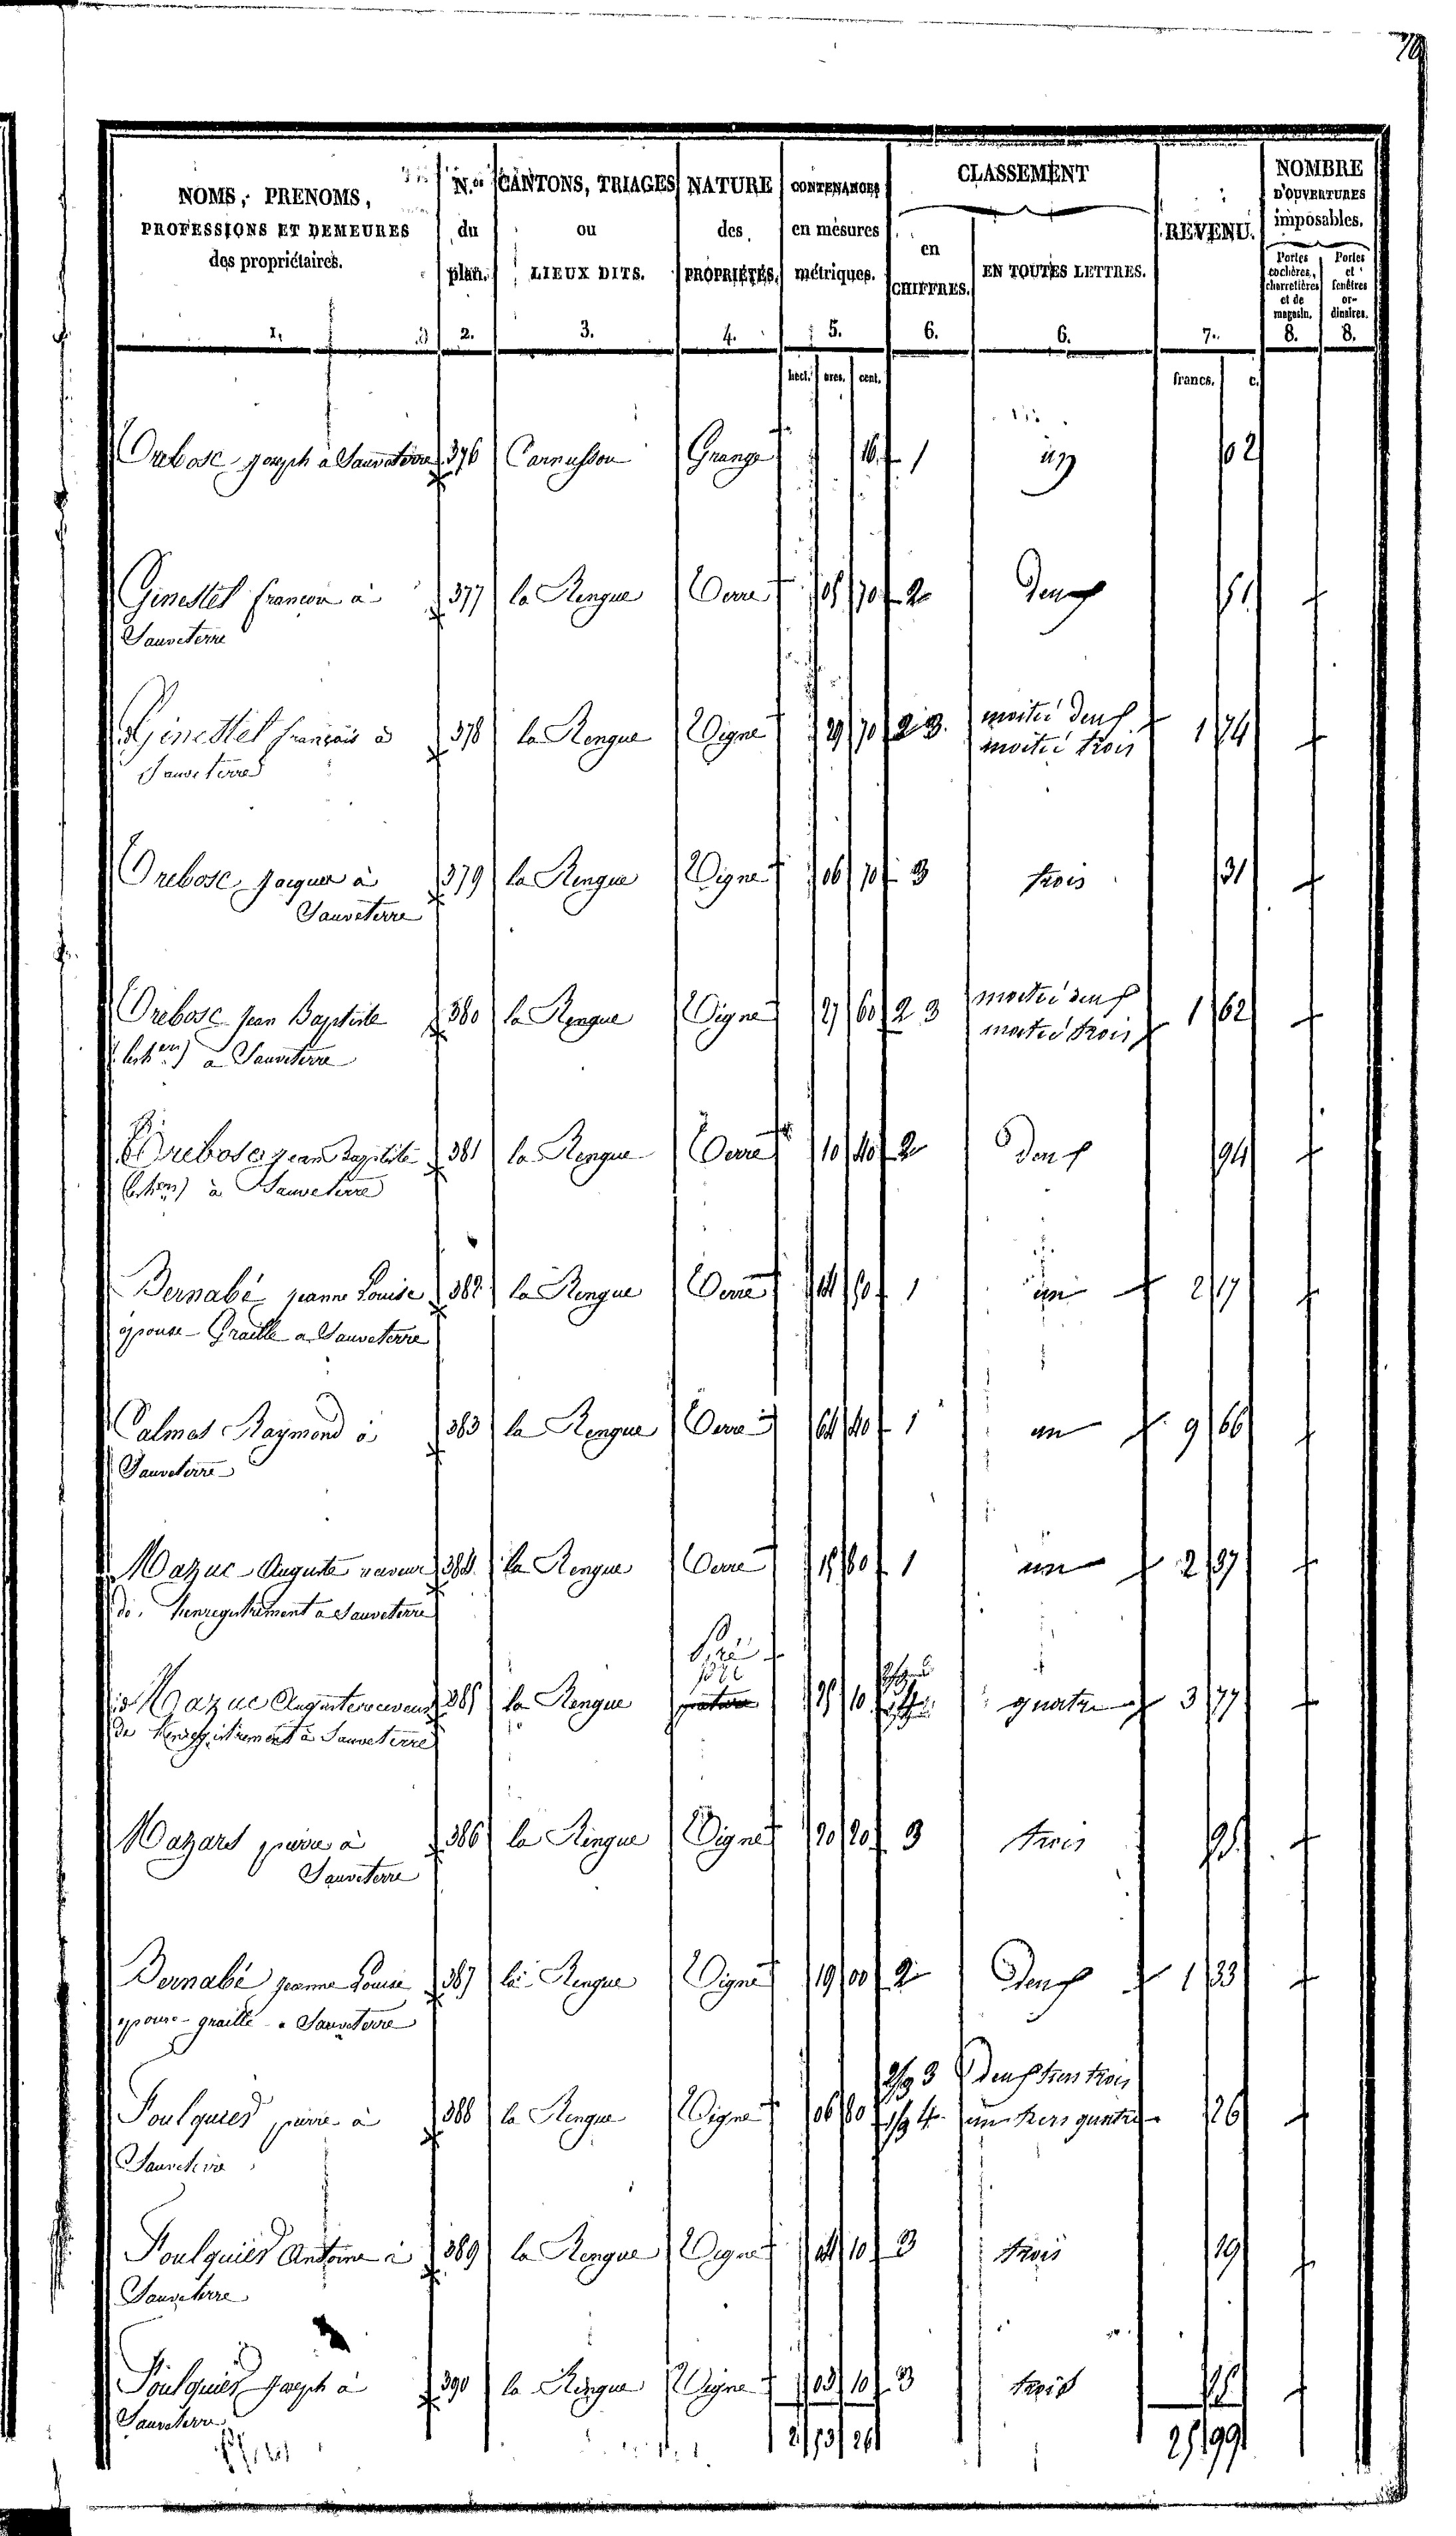 NOMS, PRENOMS,
PROFESSIONS ET DEMEURES
des propriétaires.
1.
N.os
du
plan.
2.
CANTONS, TRIAGES
ou
LIEUX DITS.
3.
NATURE
des
PROPRIÉTÉS.
4.
CONTENANCES
en mesures
métriques.
5.
CLASSEMENT
en
CHIFFRES.
6.
EN TOUTES LETTRES.
6.
REVENU.
7.
NOMBRE
D'OUVERTURES
imposables.
Portes
cochères,
charretières
et de
magasin.
8.
Portes
et
fenêtres
or-
dinaires.
8.
hect. ares. cent. francs. c.
Trebosc joseph à Sauveterre 376 Carnusson Grange 16 1 un 02
Ginestet françois à 377 la Rengue Terre 05 70 2 deux 51
Sauveterre
Ginestet françois à 378 la Rengue Vigne 29 70 2 3 moitié deux 1 74
Sauveterre moitié trois
Trebosc jacques à 379 la Rengue Vigne 06 70 3 trois 31
Sauveterre
Trebosc jean Baptiste 380 la Rengue Vigne 27 60 2 3 moitié deux 1 62
à Sauveterre moitié trois
Trebosc jean Baptiste 381 la Rengue Terre 10 40 2 deux 94
à Sauveterre
Bernabé jeanne Louise 382 la Rengue Terre 14 50 1 un 2 17
épouse Graille a Sauveterre
Calmes Raymond à 383 la Rengue Terre 64 40 1 un 9 66
Sauveterre
Mazuc Auguste receveur 384 la Rengue Terre 15 80 1 un 2 37
de l'enregistrement a Sauveterre
Pré
Mazuc Auguste receveur 385 la Rengue pature 25 10 quatre 3 77
de l'enregistrement à Sauveterre
Mazars pierre à 386 la Rengue Vigne 20 20 3 trois 95
Sauveterre
Bernabé jeanne Louise 387 la Rengue Vigne 19 00 2 deux 1 33
epouse graille a Sauveterre
2/3 3 deux tiers trois
Foulquier pierre à 388 la Rengue Vigne 06 80 1/3 4 un tiers quatre 26
Sauveterre
Foulquier Antoine à 389 la Rengue Vigne 04 10 3 trois 19
Sauveterre
Foulquier joseph à 390 la Rengue Vigne 03 10 3 trois 15
Sauveterre
2 53 26 25 99